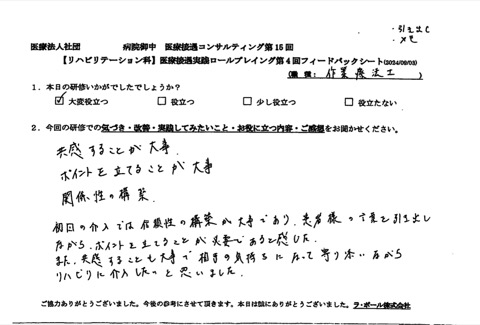 ・引き出し
・メモ
医療法人社団　　　病院御中　医療接遇コンサルティング第15回
【リハビリテーション科】医療接遇実践ロールプレイング第4回フィードバックシート(2024/09/03)
(職種: 作業療法士 )
1．本日の研修いかがでしたでしょうか？
☑ 大変役立つ　□ 役立つ　□ 少し役立つ　□ 役立たない
2．今回の研修での気づき・改善・実践してみたいこと・お役に立つ内容・ご感想をお聞かせください。
共感することが大事．
ポイントを立てることが大事
関係性の構築．
初回の介入では信頼性の構築が大事であり、患者様の言葉を引き出し
ながら、ポイントを立てることが必要であると感じた．
また、共感することも大事で相手の気持ちになって寄り添いながら
リハビリに介入したいと思いました．
ご協力ありがとうございました。今後の参考にさせて頂きます。本日は誠にありがとうございました。ラ・ポール株式会社